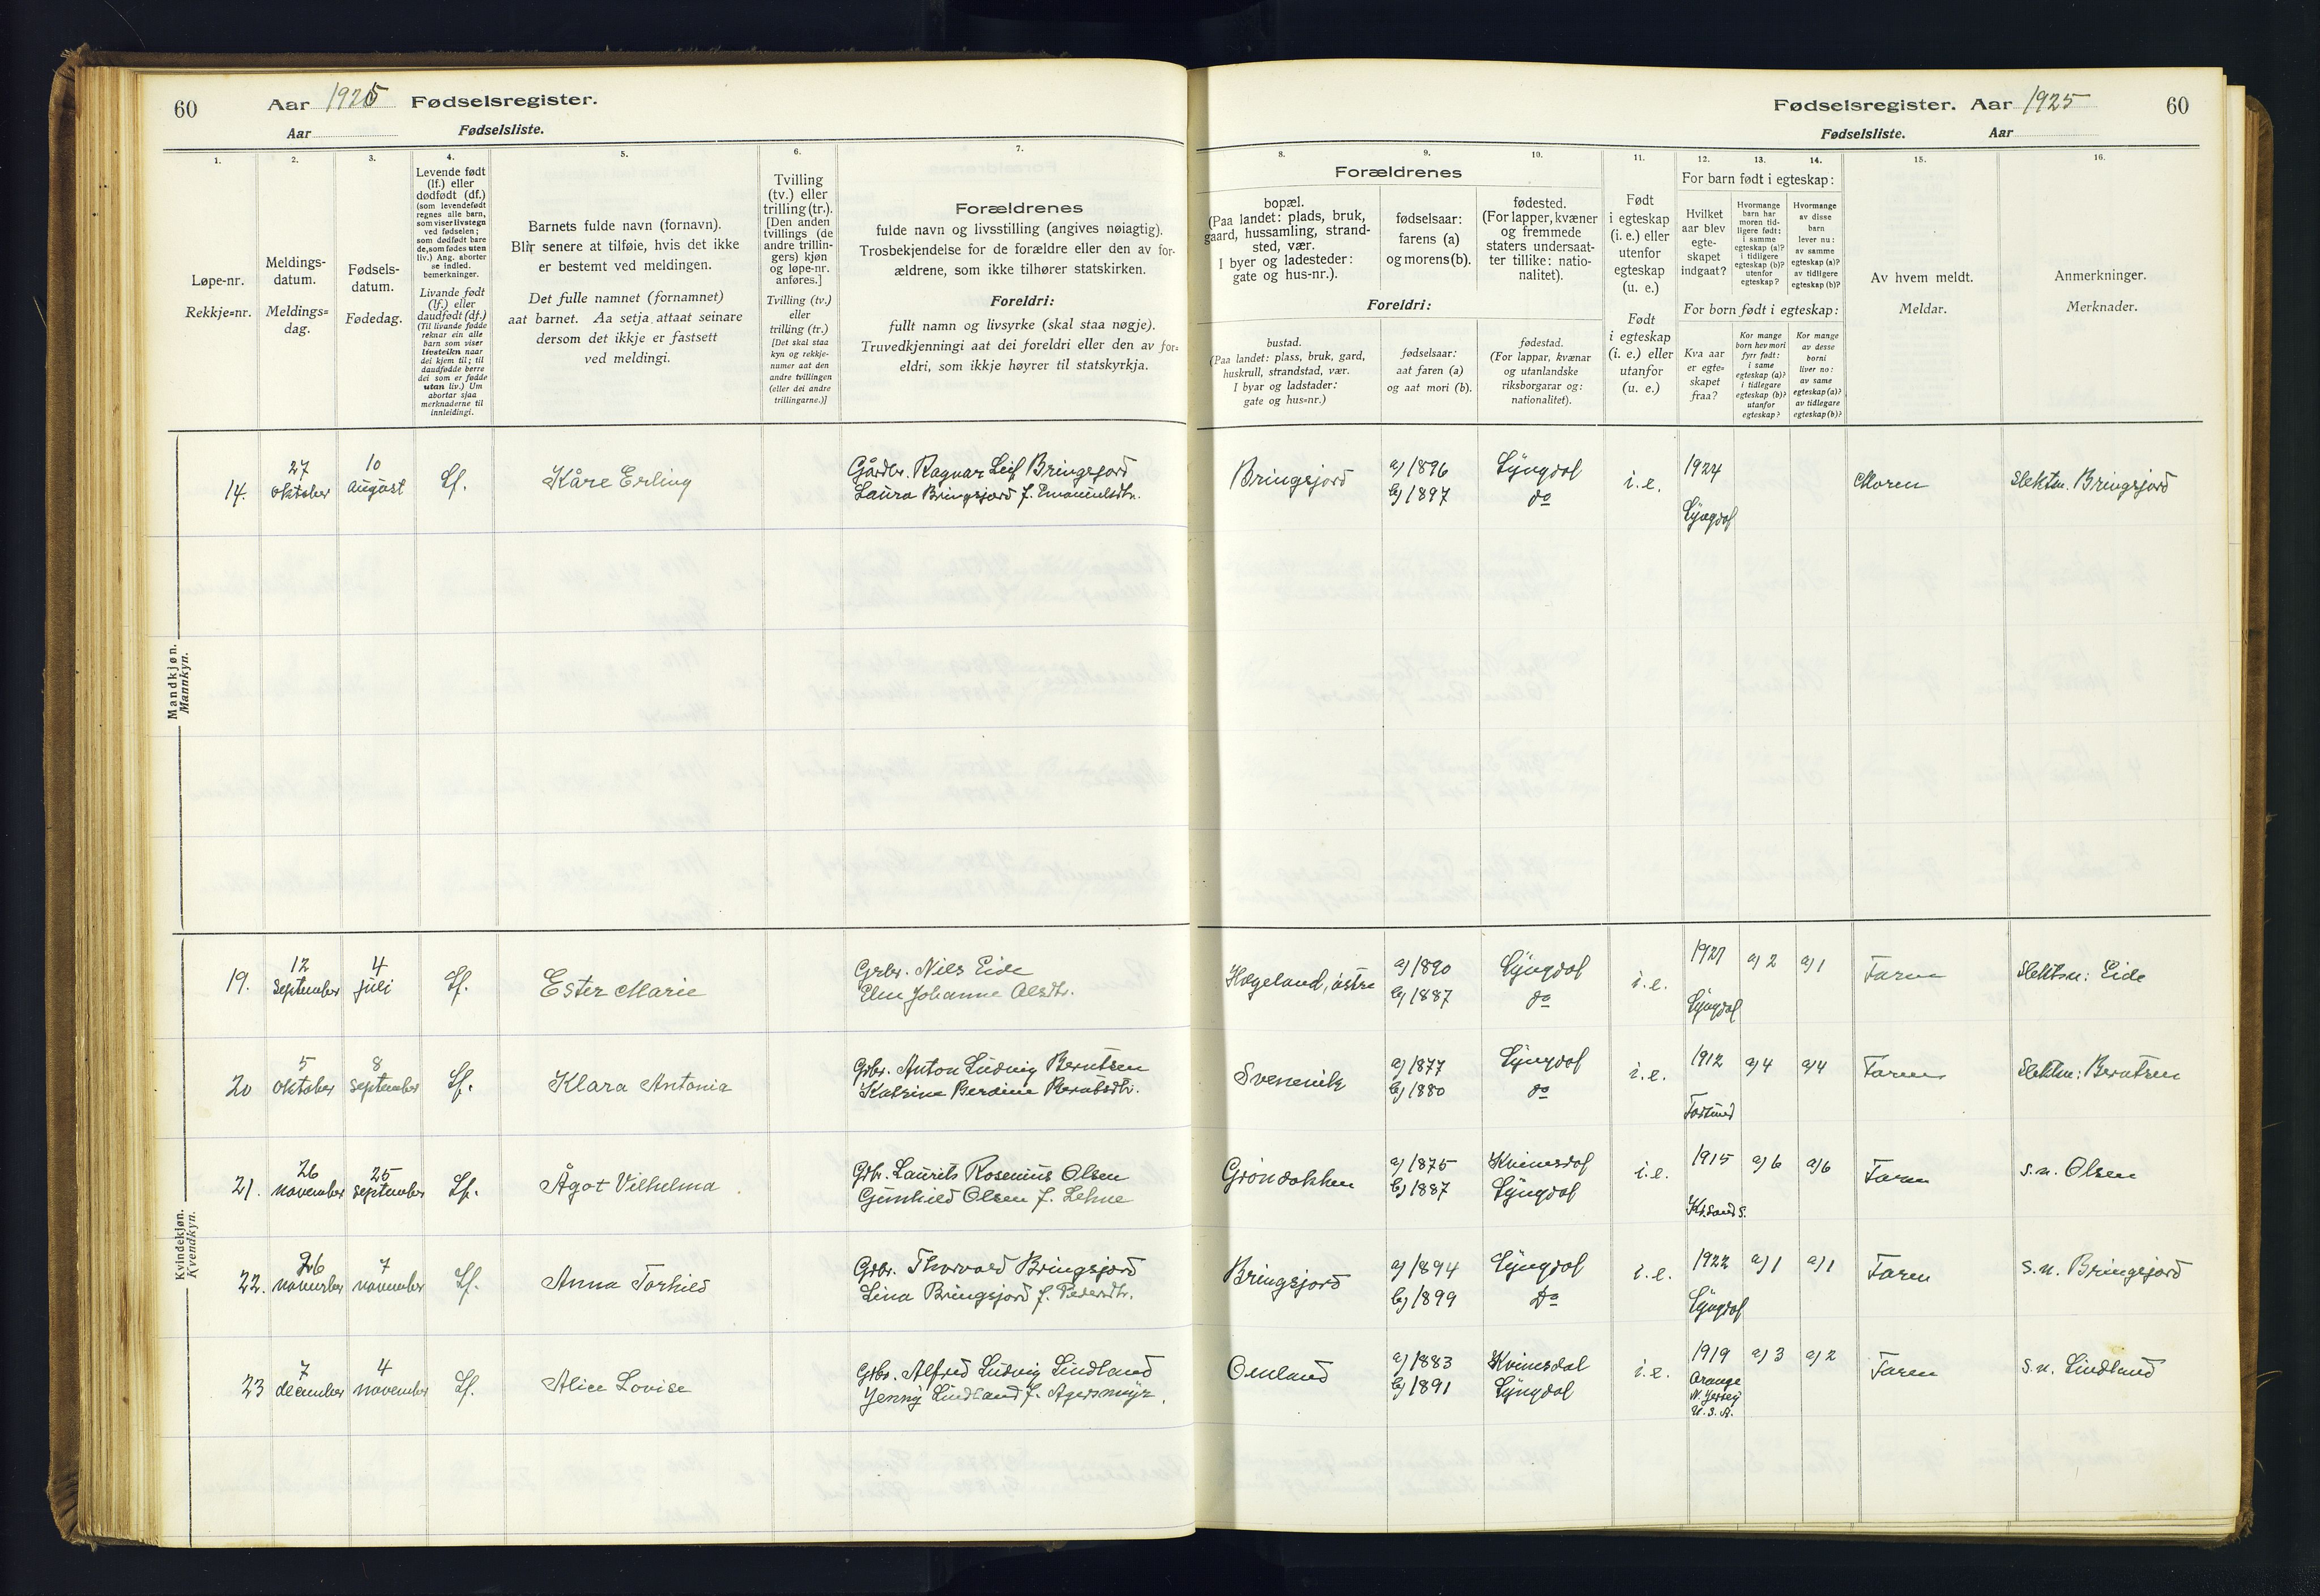 60 Aar 1925 Fødselsregister.
Aar Fødselsliste.
1. 2. 3. 4. 5. 6. 7.
Løpe-nr.
Rekkje=nr.
Meldings-
datum.
Meldings=
dag.
Fødsels-
datum.
Fødedag.
Levende født
(lf.) eller
dødfødt (df.)
(som levendefødt
regnes alle barn,
som viser livstegn
ved fødselen;
som dødfødt bare
de, som fødes uten
liv.) Ang. aborter
se indled.
bemerkninger.
Livande født
(lf.) eller
daudfødt (df.)
(Til livande fødde
reknar ein alle
barn som viser
livsteikn naar
dei kjem til; til
daudfødde berre
dei som er fødde
utan liv.) Um
abortar sjaa
merknaderne til
innleidingi.
Barnets fulde navn (fornavn).
Blir senere at tilføie, hvis det ikke
er bestemt ved meldingen.
Det fulle namnet (fornamnet)
aat barnet. Aa setja attaat seinare
dersom det ikkje er fastsett
ved meldingi.
Tvilling
(tv.) eller
trilling (tr.).
[Den anden
tvillings (de
andre trillin-
gers) kjøn
og løpe-nr.
anføres.]
Tvilling (tv.)
eller
trilling (tr.)
[Det skal staa
kyn og rekkje-
numer aat den
andre tvillingen
(eller dei andre
trillingarne.)]
Forældrenes
fulde navn og livsstilling (angives nøiagtig).
Trosbekjendelse for de forældre eller den av for-
ældrene, som ikke tilhører statskirken.
Foreldri:
fullt namn og livsyrke (skal staa nøgje).
Truvedkjenningi aat dei foreldri eller den av for-
eldri, som ikkje høyrer til statskyrkja.
Mandkjøn.
Mannkyn.
14. 27 oktober 10 august Lf. Kåre Erling Gårdbr. Ragnar Leif Bringsjord
Laura Bringsjord f. Emanuelsdtr.
Kvindekjøn.
Kvendkyn.
19. 12 september 4 juli Lf. Ester Marie Grbr. Nils Eide
Elen Johanne Olsdtr.
20 5 oktober 8 september Lf. Klara Antonia Grbr. Anton Ludvig Berntsen
Katrine Berdine Berntsdtr.
21. 26 november 25 september Lf. Ågot Vilhelma Grbr. Laurits Rosenius Olsen
Gunhild Olsen f. Lehne
22. 26 november 7 november Lf. Anna Torhild Grbr. Thorvald Bringsjord
Lina Bringsjord f. Pedersdtr.
23 7 december 4 november Lf. Alice Lovise Grbr. Alfred Ludvig Lindland
Jenny Lindland f. Agersmyr.
Fødselsregister. Aar 1925 60
Fødselsliste. Aar
8. 9. 10. 11. 12. 13. 14. 15. 16.
Forældrenes
bopæl.
(Paa landet: plads, bruk,
gaard, hussamling, strand-
sted, vær.
I byer og ladesteder:
gate og hus-nr.).
fødselsaar:
farens (a)
og morens (b).
fødested.
(For lapper, kvæner
og fremmede
staters undersaat-
ter tillike: natio-
nalitet).
Foreldri:
bustad.
(Paa landet: plass, bruk, gard,
huskrull, strandstad, vær.
I byar og ladstader:
gate og hus=nr.)
fødselsaar:
aat faren (a)
og aat mori (b).
fødestad.
(For lappar, kvænar
og utanlandske
riksborgarar og:
nationalitet).
Født
i egteskap
(i. e.) eller
utenfor
egteskap
(u. e.)
Født
i egteskap
(i. e.) eller
utanfor
(u. e.)
For barn født i egteskap:
Hvilket
aar blev
egte-
skapet
indgaat?
Hvormange
barn har
moren tid-
ligere født:
i samme
egteskap (a)?
i tidligere
egteskap (b)?
utenfor
egteskap?
Hvormange
av disse
barn
lever nu:
av samme
egteskap (a)?
av tidligere
egteskap (b)?
For born født i egteskap:
Kva aar
er egte=
skapet
fraa?
Kor mange
born hev mori
fyrr født:
i same
egteskap (a)?
i tidlegare
egteskap (b)?
utanfor
egteskap?
Kor mange
av desse
borni
liver no:
av same
egteskap (a)?
av tidlegare
egteskap (b)?
Av hvem meldt.
Meldar.
Anmerkninger.
Merknader.
Bringsjord a) 1896 Lyngdal i.e. 1924 Moren Slektsn. Bringsjord
b) 1897 do Lyngdal
Hægeland, østre a) 1890 Lyngdal i.e. 1921 a) 2 a) 1 Faren Slektsn: Eide
b) 1887 do Lyngdal
Svenevik a) 1877 Lyngdal i.e. 1912 a) 4 a) 4 Faren Slektsn: Berntsen
b) 1880 do Farsund
Grøndokken a) 1875 Kvinesdal i.e. 1915 a) 6 a) 6 Faren S.n. Olsen
b) 1887 Lyngdal Kr.sand S.
Bringsjord a) 1894 Lyngdal i.e. 1922 a) 1 a) 1 Faren S.n. Bringsjord
b) 1899 Do Lyngdal
Omland a) 1883 Kvinesdal i.e. 1919 a) 3 a) 2 Faren S.n. Lindland
b) 1891 Lyngdal Orange
N. Jersey
U.S.A.